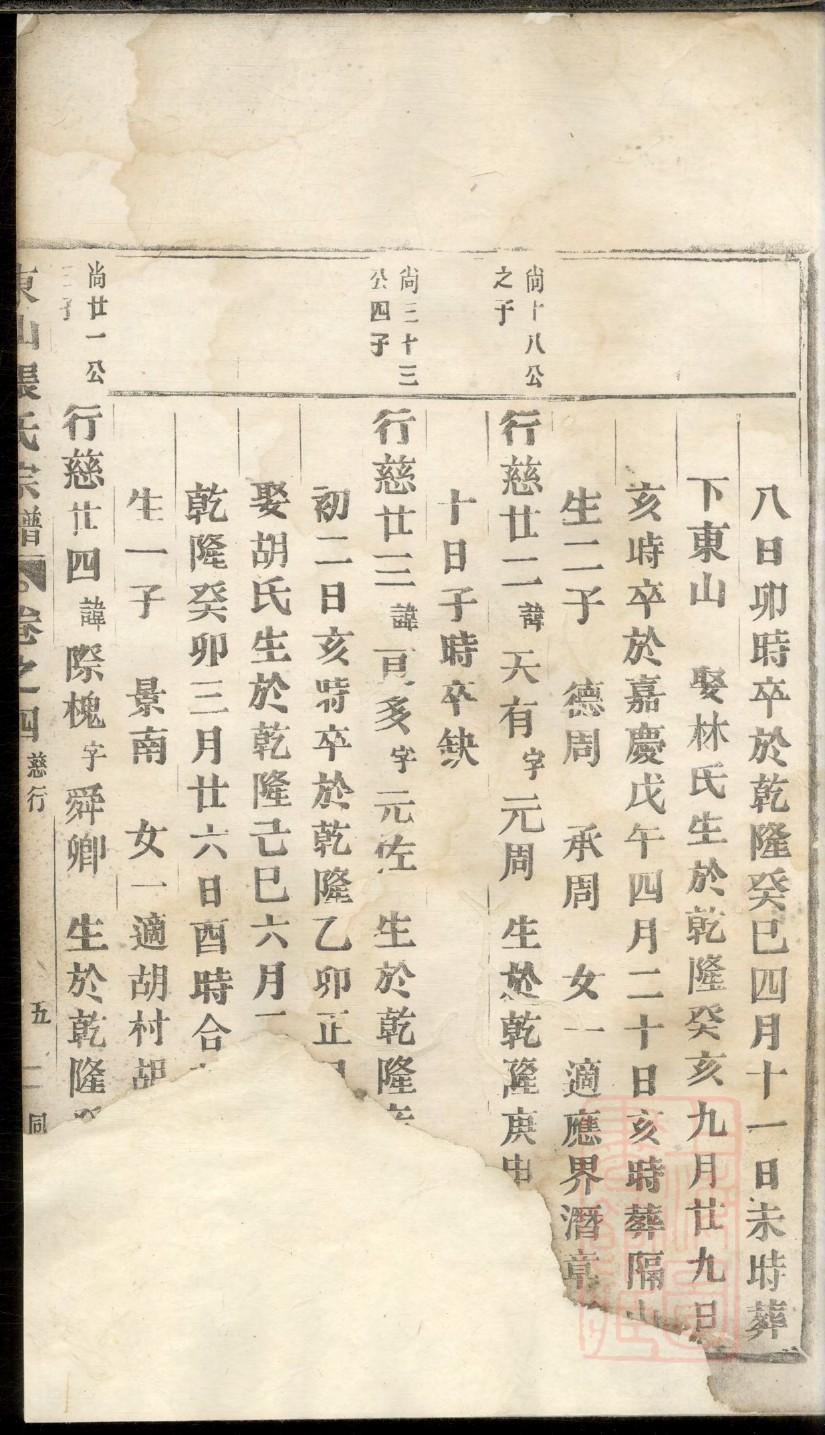 八日卯時卒於乾隆癸巳四月十一日未時葬
下東山　娶林氏生於乾隆癸亥九月廿九日
亥時卒於嘉慶戊午四月二十日亥時葬隔山
生二子　德周　承周　女一適應界潛章
尚十八公
之子
行慈廿二諱天有字元周　生於乾隆庚申
十日子時卒缺
尚三十三
公四子
行慈廿三諱多字元佐　生於乾隆
初二日亥時卒於乾隆乙卯正
娶胡氏生於乾隆己巳六月
乾隆癸卯三月廿六日酉時合
生一子　景南　女一適胡村胡
尚廿一公
三子
行慈廿四諱際槐字舜卿　生於乾隆
東山張氏宗譜　卷之四　慈行　五　同